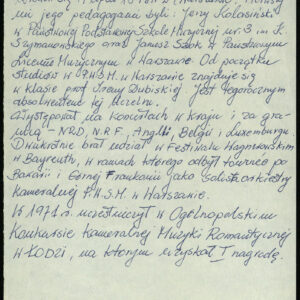 mi jego pedagogami byli: Jerzy Kołasiński
w Państwowej Podstawowej Szkole Muzycznej nr 3 im. K.
Szymanowskiego oraz Janusz w Państwowym
Liceum Muzycznym w Warszawie. Od początku
studiów w P.W.S.M. w Warszawie znajduje się
w klasie prof. Ireny Dubiskiej. Jest tegorocznym
absolwentem tej uczelni.
Występował na koncertach w kraju i za gra-
nicą - NRD, N.R.F., Anglii, Belgii i Luxemburgu
Dwukrotnie brał udział w Festiwalu Wagnerowskim
w Bayreuth, w ramach którego odbył tournée po
Bawarii i Górnej Frankonii jako solista orkiestry
Kameralnej P.W.S.M. w Warszawie.
W 1971 r. uczestniczył w Ogólnopolskim
Konkursie Kameralnej Muzyki Romantycznej
w Łodzi, na którym uzyskał I nagrodę.